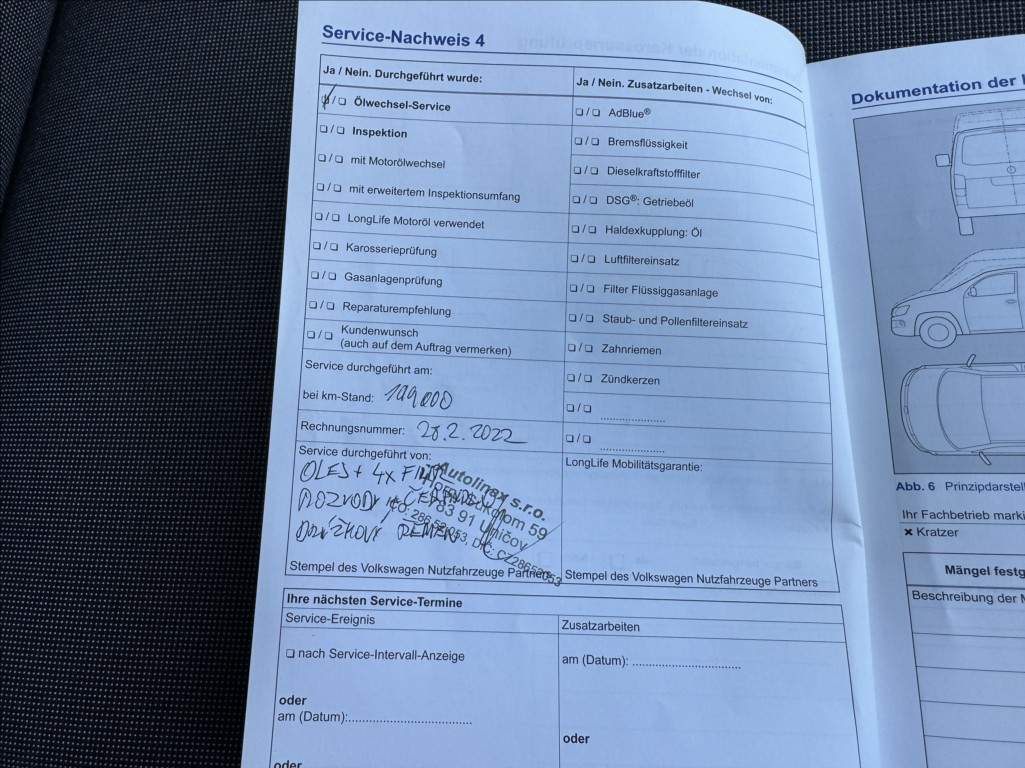 Service-Nachweis 4
Ja / Nein. Durchgeführt wurde:
❏ / ❏ Ölwechsel-Service
❏ / ❏ Inspektion
❏ / ❏ mit Motorölwechsel
❏ / ❏ mit erweitertem Inspektionsumfang
❏ / ❏ LongLife Motoröl verwendet
❏ / ❏ Karosserieprüfung
❏ / ❏ Gasanlagenprüfung
❏ / ❏ Reparaturempfehlung
❏ / ❏ Kundenwunsch
(auch auf dem Auftrag vermerken)
Service durchgeführt am:
bei km-Stand: 199000
Rechnungsnummer: 28.2.2022
Service durchgeführt von:
OLEJ + 4x
ROZVODY +
DRÁŽKOVÝ ŘEMEN
Autolinex s.r.o.
59
783 91 Uničov
DIČ: CZ28652053
Stempel des Volkswagen Nutzfahrzeuge Partners
Ja / Nein. Zusatzarbeiten - Wechsel von:
❏ / ❏ AdBlue®
❏ / ❏ Bremsflüssigkeit
❏ / ❏ Dieselkraftstofffilter
❏ / ❏ DSG®: Getriebeöl
❏ / ❏ Haldexkupplung: Öl
❏ / ❏ Luftfiltereinsatz
❏ / ❏ Filter Flüssiggasanlage
❏ / ❏ Staub- und Pollenfiltereinsatz
❏ / ❏ Zahnriemen
❏ / ❏ Zündkerzen
❏ / ❏ ....................
❏ / ❏ ....................
LongLife Mobilitätsgarantie:
Stempel des Volkswagen Nutzfahrzeuge Partners
Ihre nächsten Service-Termine
Service-Ereignis
❏ nach Service-Intervall-Anzeige
oder
am (Datum):..............................
oder
Zusatzarbeiten
am (Datum): ..............................
oder
Dokumentation der
Abb. 6 Prinzipdarstel
Ihr Fachbetrieb marki
✖ Kratzer
Mängel festg
Beschreibung der